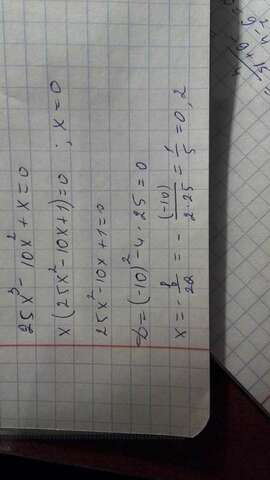 25x³ - 10x² + x = 0
x(25x² - 10x + 1) = 0 ; x = 0
25x² - 10x + 1 = 0
D = (-10)² - 4 · 25 = 0
x = - b/2a = - (-10)/2·25 = 1/5 = 0,2